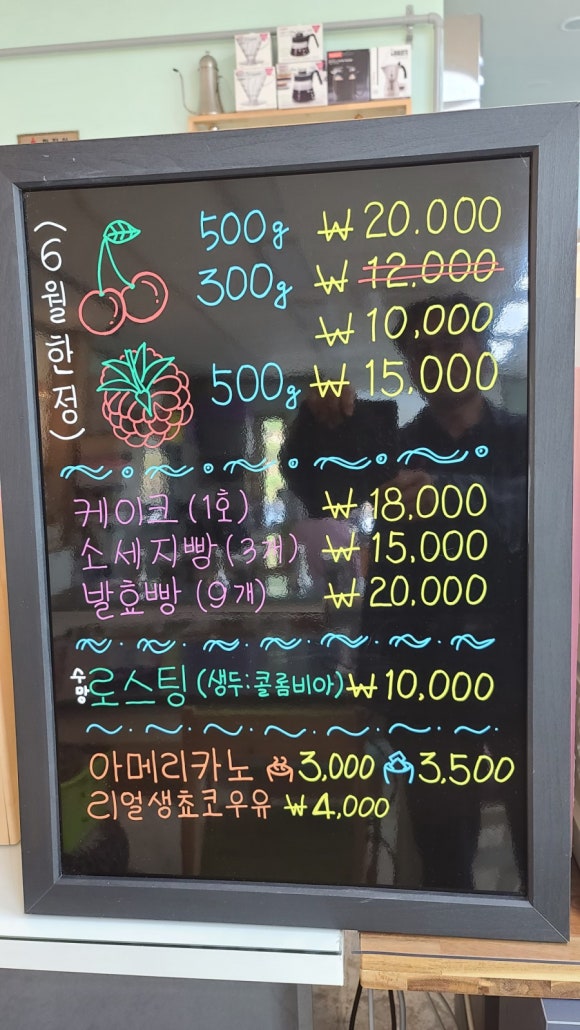 (6월한정)
500g ₩ 20.000
300g ₩ 12.000
₩ 10,000
500g ₩ 15,000
케이크 (1호) ₩ 18,000
소세지빵 (3개) ₩ 15,000
발효빵 (9개) ₩ 20,000
수망 로스팅 (생두:콜롬비아) ₩ 10,000
아메리카노 3,000 3,500
리얼생쵸코우유 ₩ 4,000